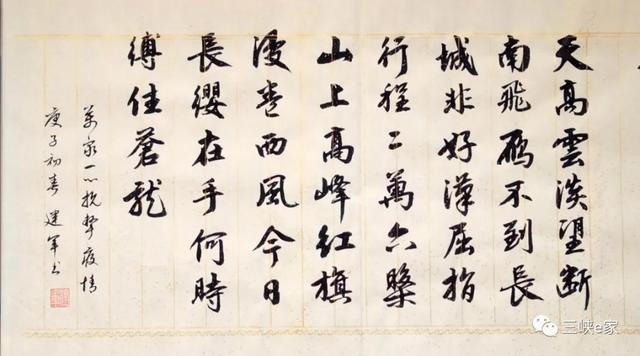 天高雲淡望断
南飛雁不到長
城非好漢屈指
行程二萬六槃
山上高峰紅旗
漫卷西風今日
長纓在手何時
縛住蒼龍
萬衆一心抗擊疫情
庚子初春 建軍书
三峡e家